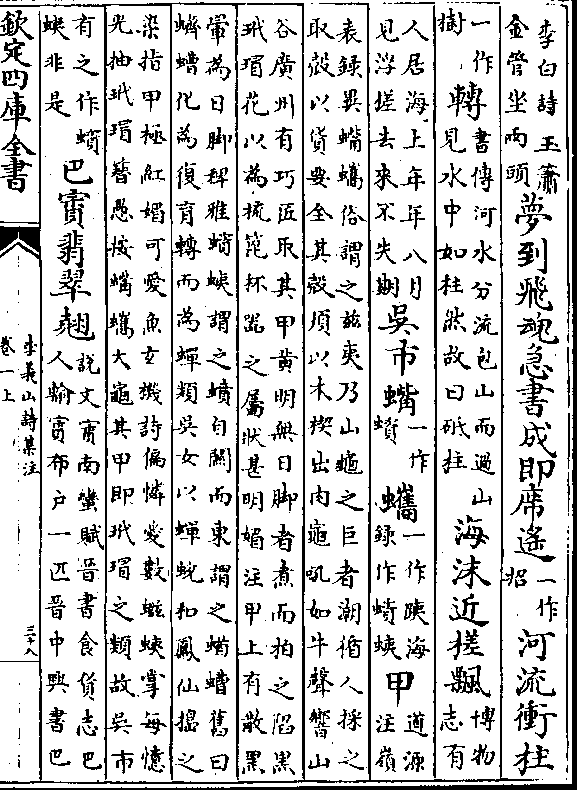 李白詩玉簫
金管坐兩頭
夢到飛魂急書成即席遙
一作
招
河流衝柱
一作
樹
轉
書傳河水分流包山而過山
見水中如柱然故曰砥柱
海沫近槎飄
博物
志有
人居海上年年八月
見浮槎去來不失期
吳市蟕
一作
蟦
蠵
一作蛦海
錄作蟦蛦
甲
道源
注嶺
表録異蟕蠵俗謂之茲夷乃山龜之巨者潮循人採之
取殻以貨要全其殻須以木楔出肉龜吼如牛聲響山
谷廣州有巧匠取其甲黄明無日脚者煮而拍之陷黒
玳瑁花以為梳篦杯器之屬狀甚明媚注甲上有散黒
暈為日脚埤雅蟦蛦謂之蟦自闗而東謂之蝤螬舊曰
蠐螬化為復育轉而為蟬類吳女以蟬蛻和鳳仙搗之
染指甲極紅媚可愛魚女機詩偏憐愛數螆蛦掌每憶
光抽玳瑁簪愚按蟕蠵大龜其甲即玳瑁之類故吳市
有之作蟦
蛦非是
巴賨翡翠翹
說文賨南蠻賦晉書食貨志巴
人輸賨布户一匹晉中興書巴
欽定四庫全書
李義山詩集注
卷一上
三十八